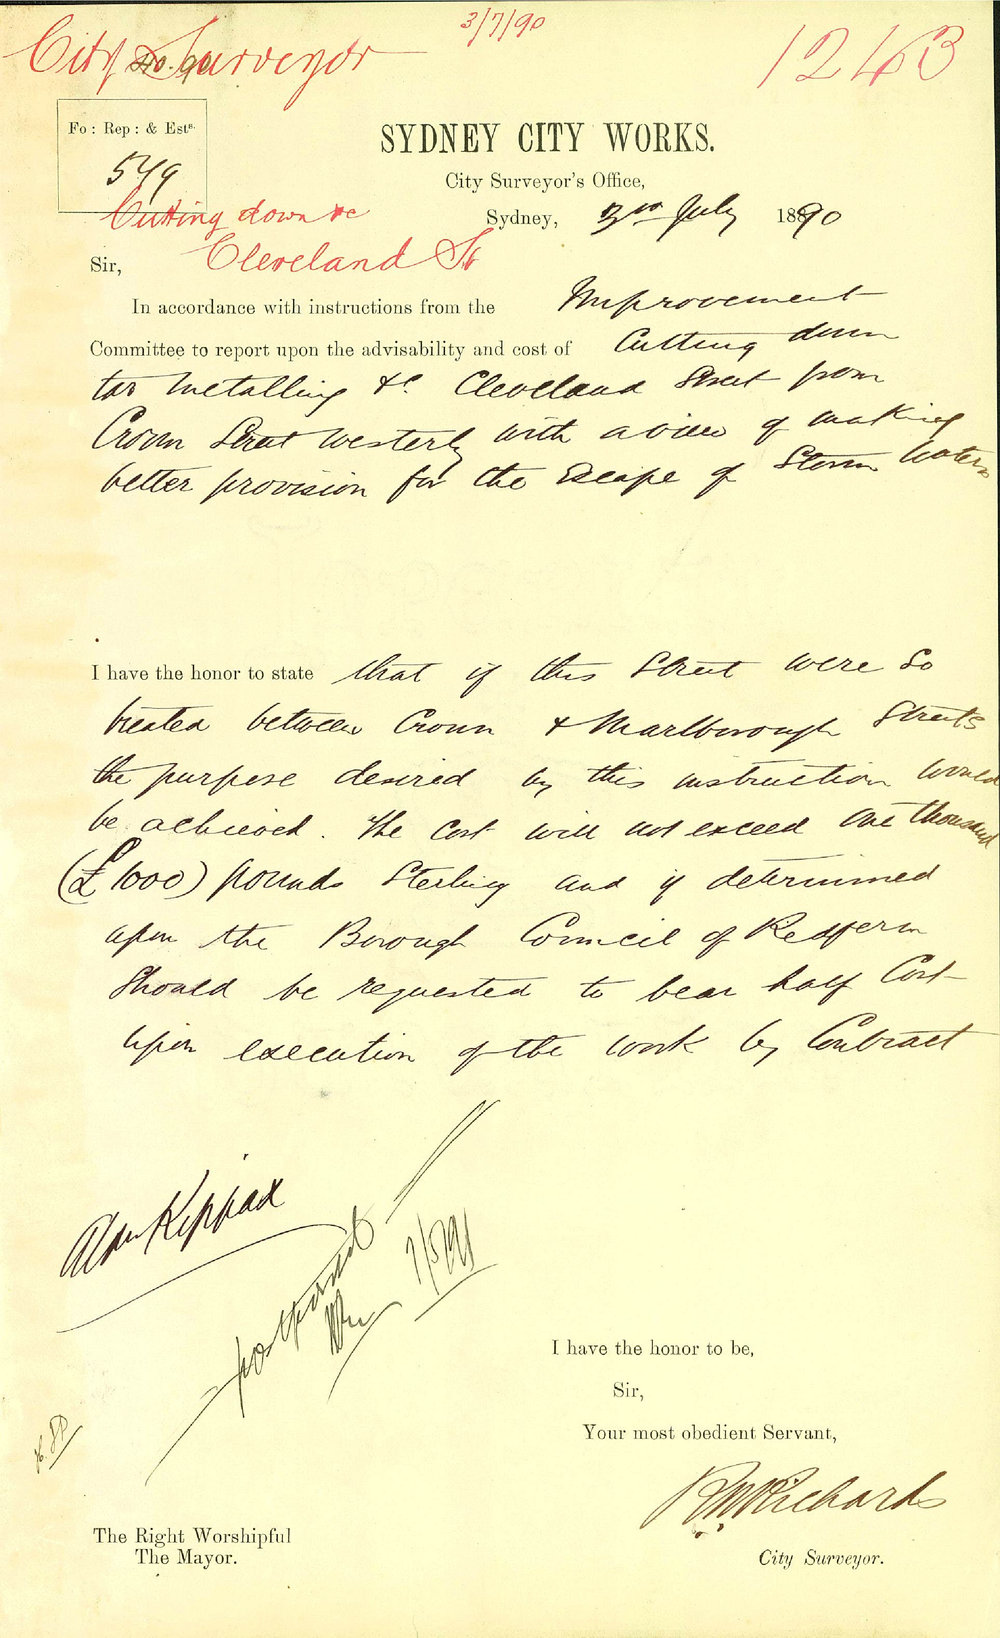 3/7/90
City Surveyor
1243
Fo: Rep: & Ests.
549
SYDNEY CITY WORKS.
City Surveyor's Office,
Cutting down &c
Sydney, 3rd July 1890
Cleveland St
Sir,
In accordance with instructions from the Improvement
Committee to report upon the advisability and cost of Cutting down
tar metalling &c. Cleveland Street from
Crown Street Westerly with a view of making
better provision for the Escape of Storm Waters
I have the honor to state that if this Street were so
treated between Crown & Marlborough Streets
the purpose desired by this instruction would
be achieved. The Cost will not exceed One thousand
(£1000) pounds Sterling and if determined
upon the Borough Council of Redfern
Should be requested to bear half Cost
upon execution of the work by Contract
Alan Kippax
postponed
7/5/91
I have the honor to be,
Sir,
Your most obedient Servant,
RWRichards
The Right Worshipful
The Mayor.
City Surveyor.